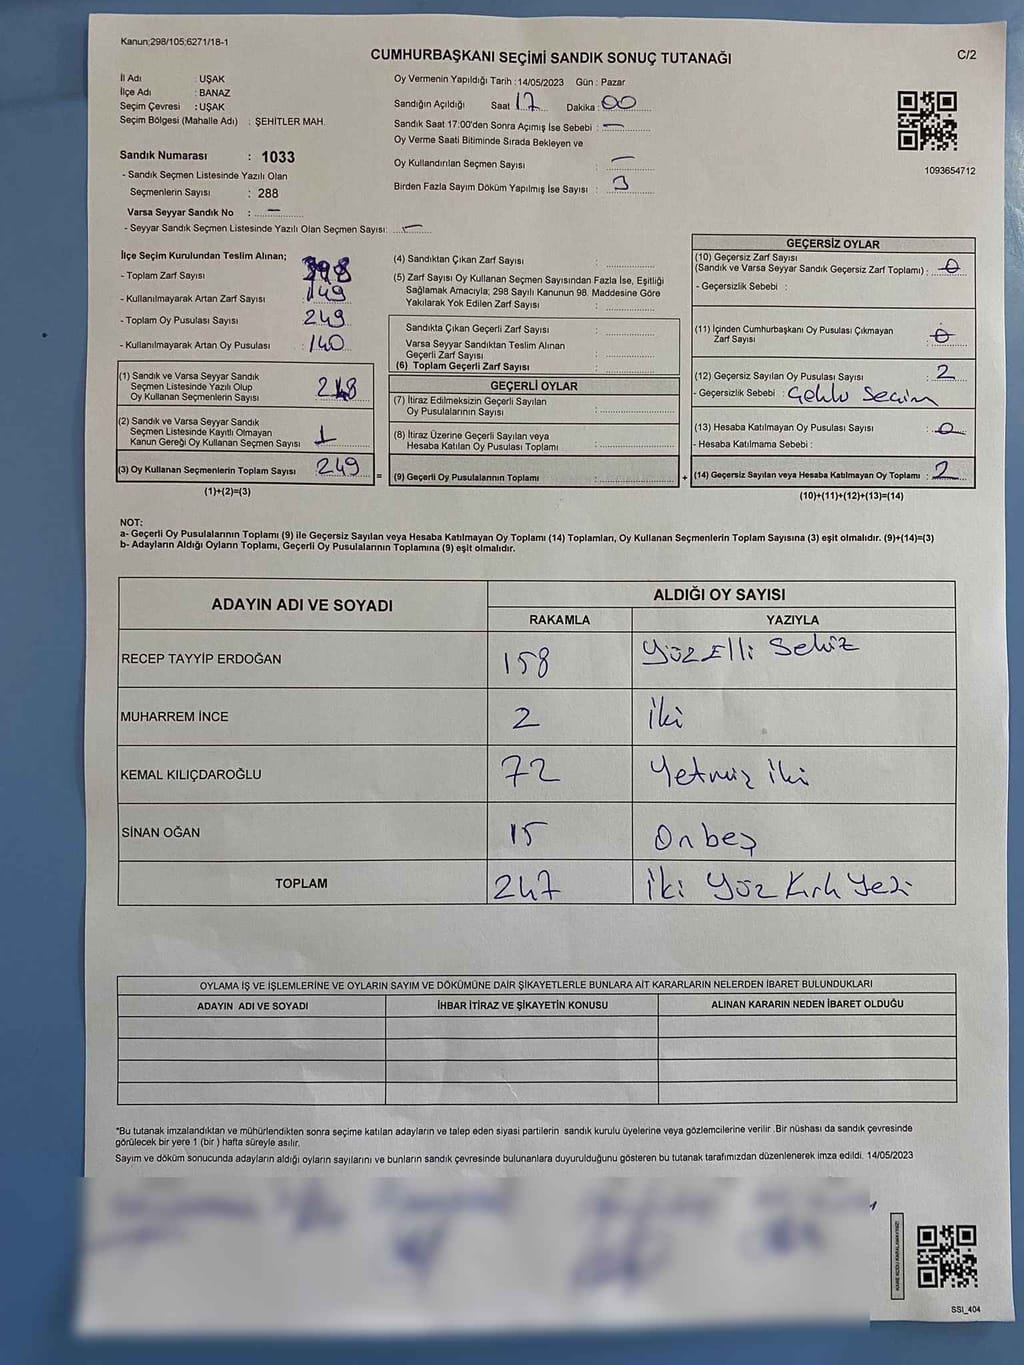 Kanun;298/105;6271/18-1
CUMHURBAŞKANI SEÇİMİ SANDIK SONUÇ TUTANAĞI
C/2
İl Adı : UŞAK
İlçe Adı : BANAZ
Seçim Çevresi : UŞAK
Seçim Bölgesi (Mahalle Adı) : ŞEHİTLER MAH.
Oy Vermenin Yapıldığı Tarih : 14/05/2023 Gün : Pazar
Sandığın Açıldığı Saat 17 Dakika : 00
Sandık Saat 17:00'den Sonra Açımış İse Sebebi : —
Oy Verme Saati Bitiminde Sırada Bekleyen ve
Oy Kullandırılan Seçmen Sayısı : —
Birden Fazla Sayım Döküm Yapılmış İse Sayısı : 3
1093654712
Sandık Numarası : 1033
- Sandık Seçmen Listesinde Yazılı Olan
Seçmenlerin Sayısı : 288
Varsa Seyyar Sandık No : —
- Seyyar Sandık Seçmen Listesinde Yazılı Olan Seçmen Sayısı: —
İlçe Seçim Kurulundan Teslim Alınan;
- Toplam Zarf Sayısı : 398
- Kullanılmayarak Artan Zarf Sayısı : 149
- Toplam Oy Pusulası Sayısı : 249
- Kullanılmayarak Artan Oy Pusulası : 140
(1) Sandık ve Varsa Seyyar Sandık
Seçmen Listesinde Yazılı Olup
Oy Kullanan Seçmenlerin Sayısı : 248
(2) Sandık ve Varsa Seyyar Sandık
Seçmen Listesinde Kayıtlı Olmayan
Kanun Gereği Oy Kullanan Seçmen Sayısı : 1
(3) Oy Kullanan Seçmenlerin Toplam Sayısı : 249 =
(1)+(2)=(3)
(4) Sandıktan Çıkan Zarf Sayısı :
(5) Zarf Sayısı Oy Kullanan Seçmen Sayısından Fazla İse, Eşitliği
Sağlamak Amacıyla; 298 Sayılı Kanunun 98. Maddesine Göre
Yakılarak Yok Edilen Zarf Sayısı :
Sandıkta Çıkan Geçerli Zarf Sayısı :
Varsa Seyyar Sandıktan Teslim Alınan
Geçerli Zarf Sayısı :
(6) Toplam Geçerli Zarf Sayısı :
GEÇERLİ OYLAR
(7) İtiraz Edilmeksizin Geçerli Sayılan
Oy Pusulalarının Sayısı :
(8) İtiraz Üzerine Geçerli Sayılan veya
Hesaba Katılan Oy Pusulası Toplamı :
(9) Geçerli Oy Pusulalarının Toplamı : +
GEÇERSİZ OYLAR
(10) Geçersiz Zarf Sayısı
(Sandık ve Varsa Seyyar Sandık Geçersiz Zarf Toplamı) : 0
- Geçersizlik Sebebi :
(11) İçinden Cumhurbaşkanı Oy Pusulası Çıkmayan
Zarf Sayısı : 0
(12) Geçersiz Sayılan Oy Pusulası Sayısı : 2
- Geçersizlik Sebebi : Çoklu Seçim
(13) Hesaba Katılmayan Oy Pusulası Sayısı : 0
- Hesaba Katılmama Sebebi :
(14) Geçersiz Sayılan veya Hesaba Katılmayan Oy Toplamı : 2
(10)+(11)+(12)+(13)=(14)
NOT:
a- Geçerli Oy Pusulalarının Toplamı (9) ile Geçersiz Sayılan veya Hesaba Katılmayan Oy Toplamı (14) Toplamları, Oy Kullanan Seçmenlerin Toplam Sayısına (3) eşit olmalıdır. (9)+(14)=(3)
b- Adayların Aldığı Oyların Toplamı, Geçerli Oy Pusulalarının Toplamına (9) eşit olmalıdır.
ADAYIN ADI VE SOYADI
ALDIĞI OY SAYISI
RAKAMLA YAZIYLA
RECEP TAYYİP ERDOĞAN 158 Yüz Elli Sekiz
MUHARREM İNCE 2 İki
KEMAL KILIÇDAROĞLU 72 Yetmiş iki
SİNAN OĞAN 15 On beş
TOPLAM 247 İki Yüz Kırk Yedi
OYLAMA İŞ VE İŞLEMLERİNE VE OYLARIN SAYIM VE DÖKÜMÜNE DAİR ŞİKAYETLERLE BUNLARA AİT KARARLARIN NELERDEN İBARET BULUNDUKLARI
ADAYIN ADI VE SOYADI İHBAR İTİRAZ VE ŞİKAYETİN KONUSU ALINAN KARARIN NEDEN İBARET OLDUĞU
*Bu tutanak imzalandıktan ve mühürlendikten sonra seçime katılan adayların ve talep eden siyasi partilerin sandık kurulu üyelerine veya gözlemcilerine verilir .Bir nüshası da sandık çevresinde
görülecek bir yere 1 (bir ) hafta süreyle asılır.
Sayım ve döküm sonucunda adayların aldığı oyların sayılarını ve bunların sandık çevresinde bulunanlara duyurulduğunu gösteren bu tutanak tarafımızdan düzenlenerek imza edildi. 14/05/2023
KARE KODU KARALAMAYINIZ!
SSI_404